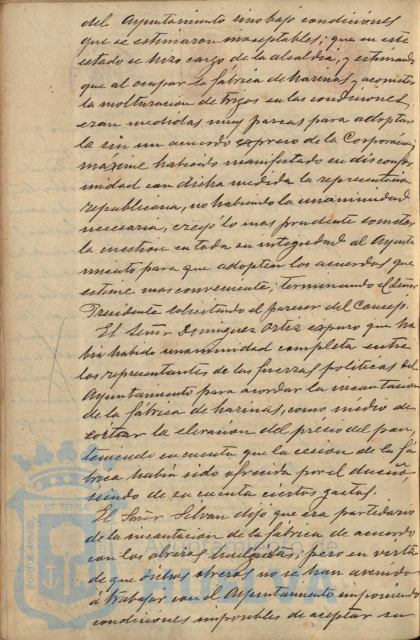 del Ayuntamiento sino bajo condiciones
que se estimaron inaceptables; que en este
estado se hizo cargo de la alcaldia, y estimando
que al ocupar la fábrica de harinas, y acometer
la molturacion de trigos en las condiciones,
eran medidas muy para adoptar
la sin un acuerdo expreso de la Corporación
máxime habiendo manifestado su disconfor
midad con dicha medida la representacion
republicana, no habiendo la unanimidad
necesaria, creyó lo mas prudente someter
la cuestion en toda su integridad al Ayunta
miento para que adopten los acuerdos que
estime mas conveniente; terminando el Señor
Presidente solicitando el parecer del Consejo.
El Señor Dominguez Ortiz expuso que ha
bia habido unanimidad completa entre
los representantes de las fuerzas politicas del
Ayuntamiento para acordar la incautacion
de la fábrica de harinas, como medio de
cortar la elevacion del precio del pan,
teniendo en cuenta que la cesion de la fá
brica habia sido ofrecida por el dueño
siendo de su cuenta ciertos gastos.
El Señor Silvan dijo que era partidario
de la incautacion de la fábrica de acuerdo
con los obreros huelguistas; pero en vista
de que dichos obreros no se han avenido
á trabajar con el Ayuntamiento imponiendo
condiciones imposibles de aceptar su
ET TERRÆ